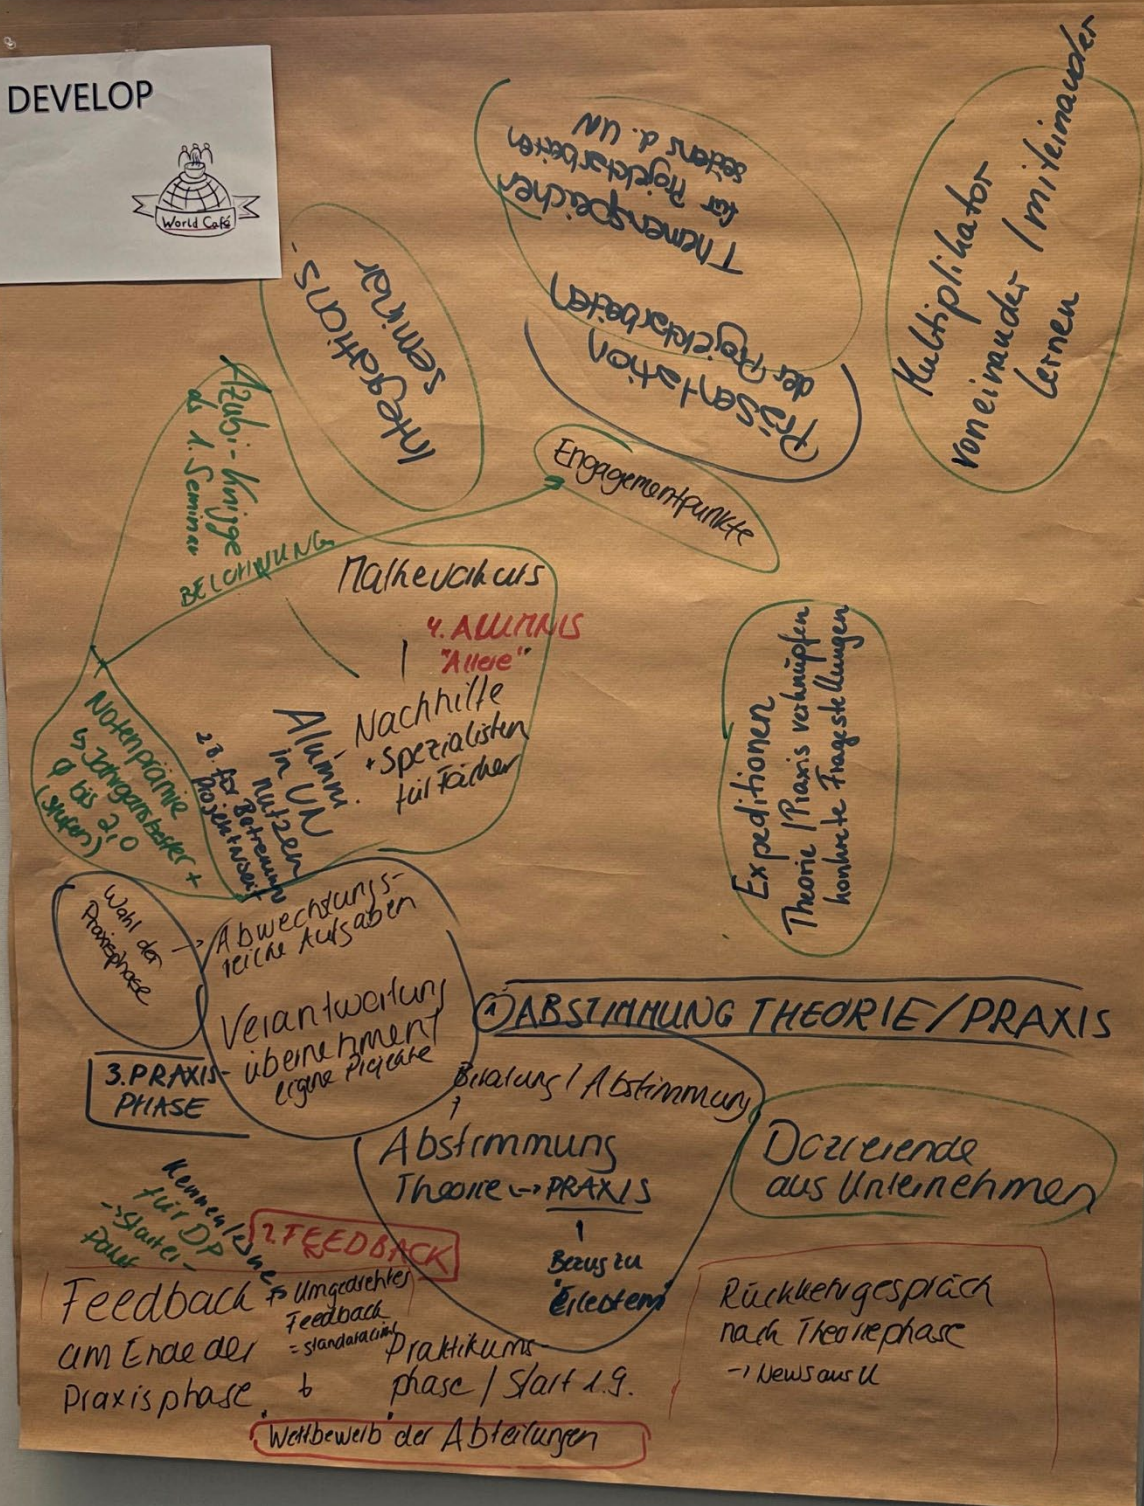 DEVELOP
World Café
Themenspeicher
für Projektarbeiten
seitens d. UN
Präsentation
der Projektarbeiten
Multiplikator
voneinander / miteinander
lernen
Integrations-
seminar
Azubi-Knigge
als 1. Seminar
BELOHNUNG
Engagementpunkte
Mathevorkurs
4. ALUMNIS
"Ältere"
Nachhilfe
+ Spezialisten
für Fächer
Alumni
in UN
nutzen
z.B. für Betreuung
Projektarbeit
Notenprämie
↳ Jahrgangsbester +
Ø bis 2,0
(Stufen)
Expeditionen
Theorie / Praxis verknüpfen
konkrete Fragestellungen
Wahl der
Praxisphase
→ Abwechslungs-
reiche Aufgaben
Verantwortung
übernehmen
eigene Projekte
3. PRAXIS-
PHASE
① ABSTIMMUNG THEORIE/PRAXIS
Beratung / Abstimmung
Abstimmung
Theorie ↔ PRAXIS
Bezug zu
Dozierende
aus Unternehmen
Kennenlernen
für DP
→ Starter-
2. FEEDBACK
Feedback
am Ende der
Praxisphase
Umgedrehtes
Feedback
Praktikums-
phase / Start 1.9.
Wettbewerb der Abteilungen
Rückkehrgespräch
nach Theoriephase
→ News aus U